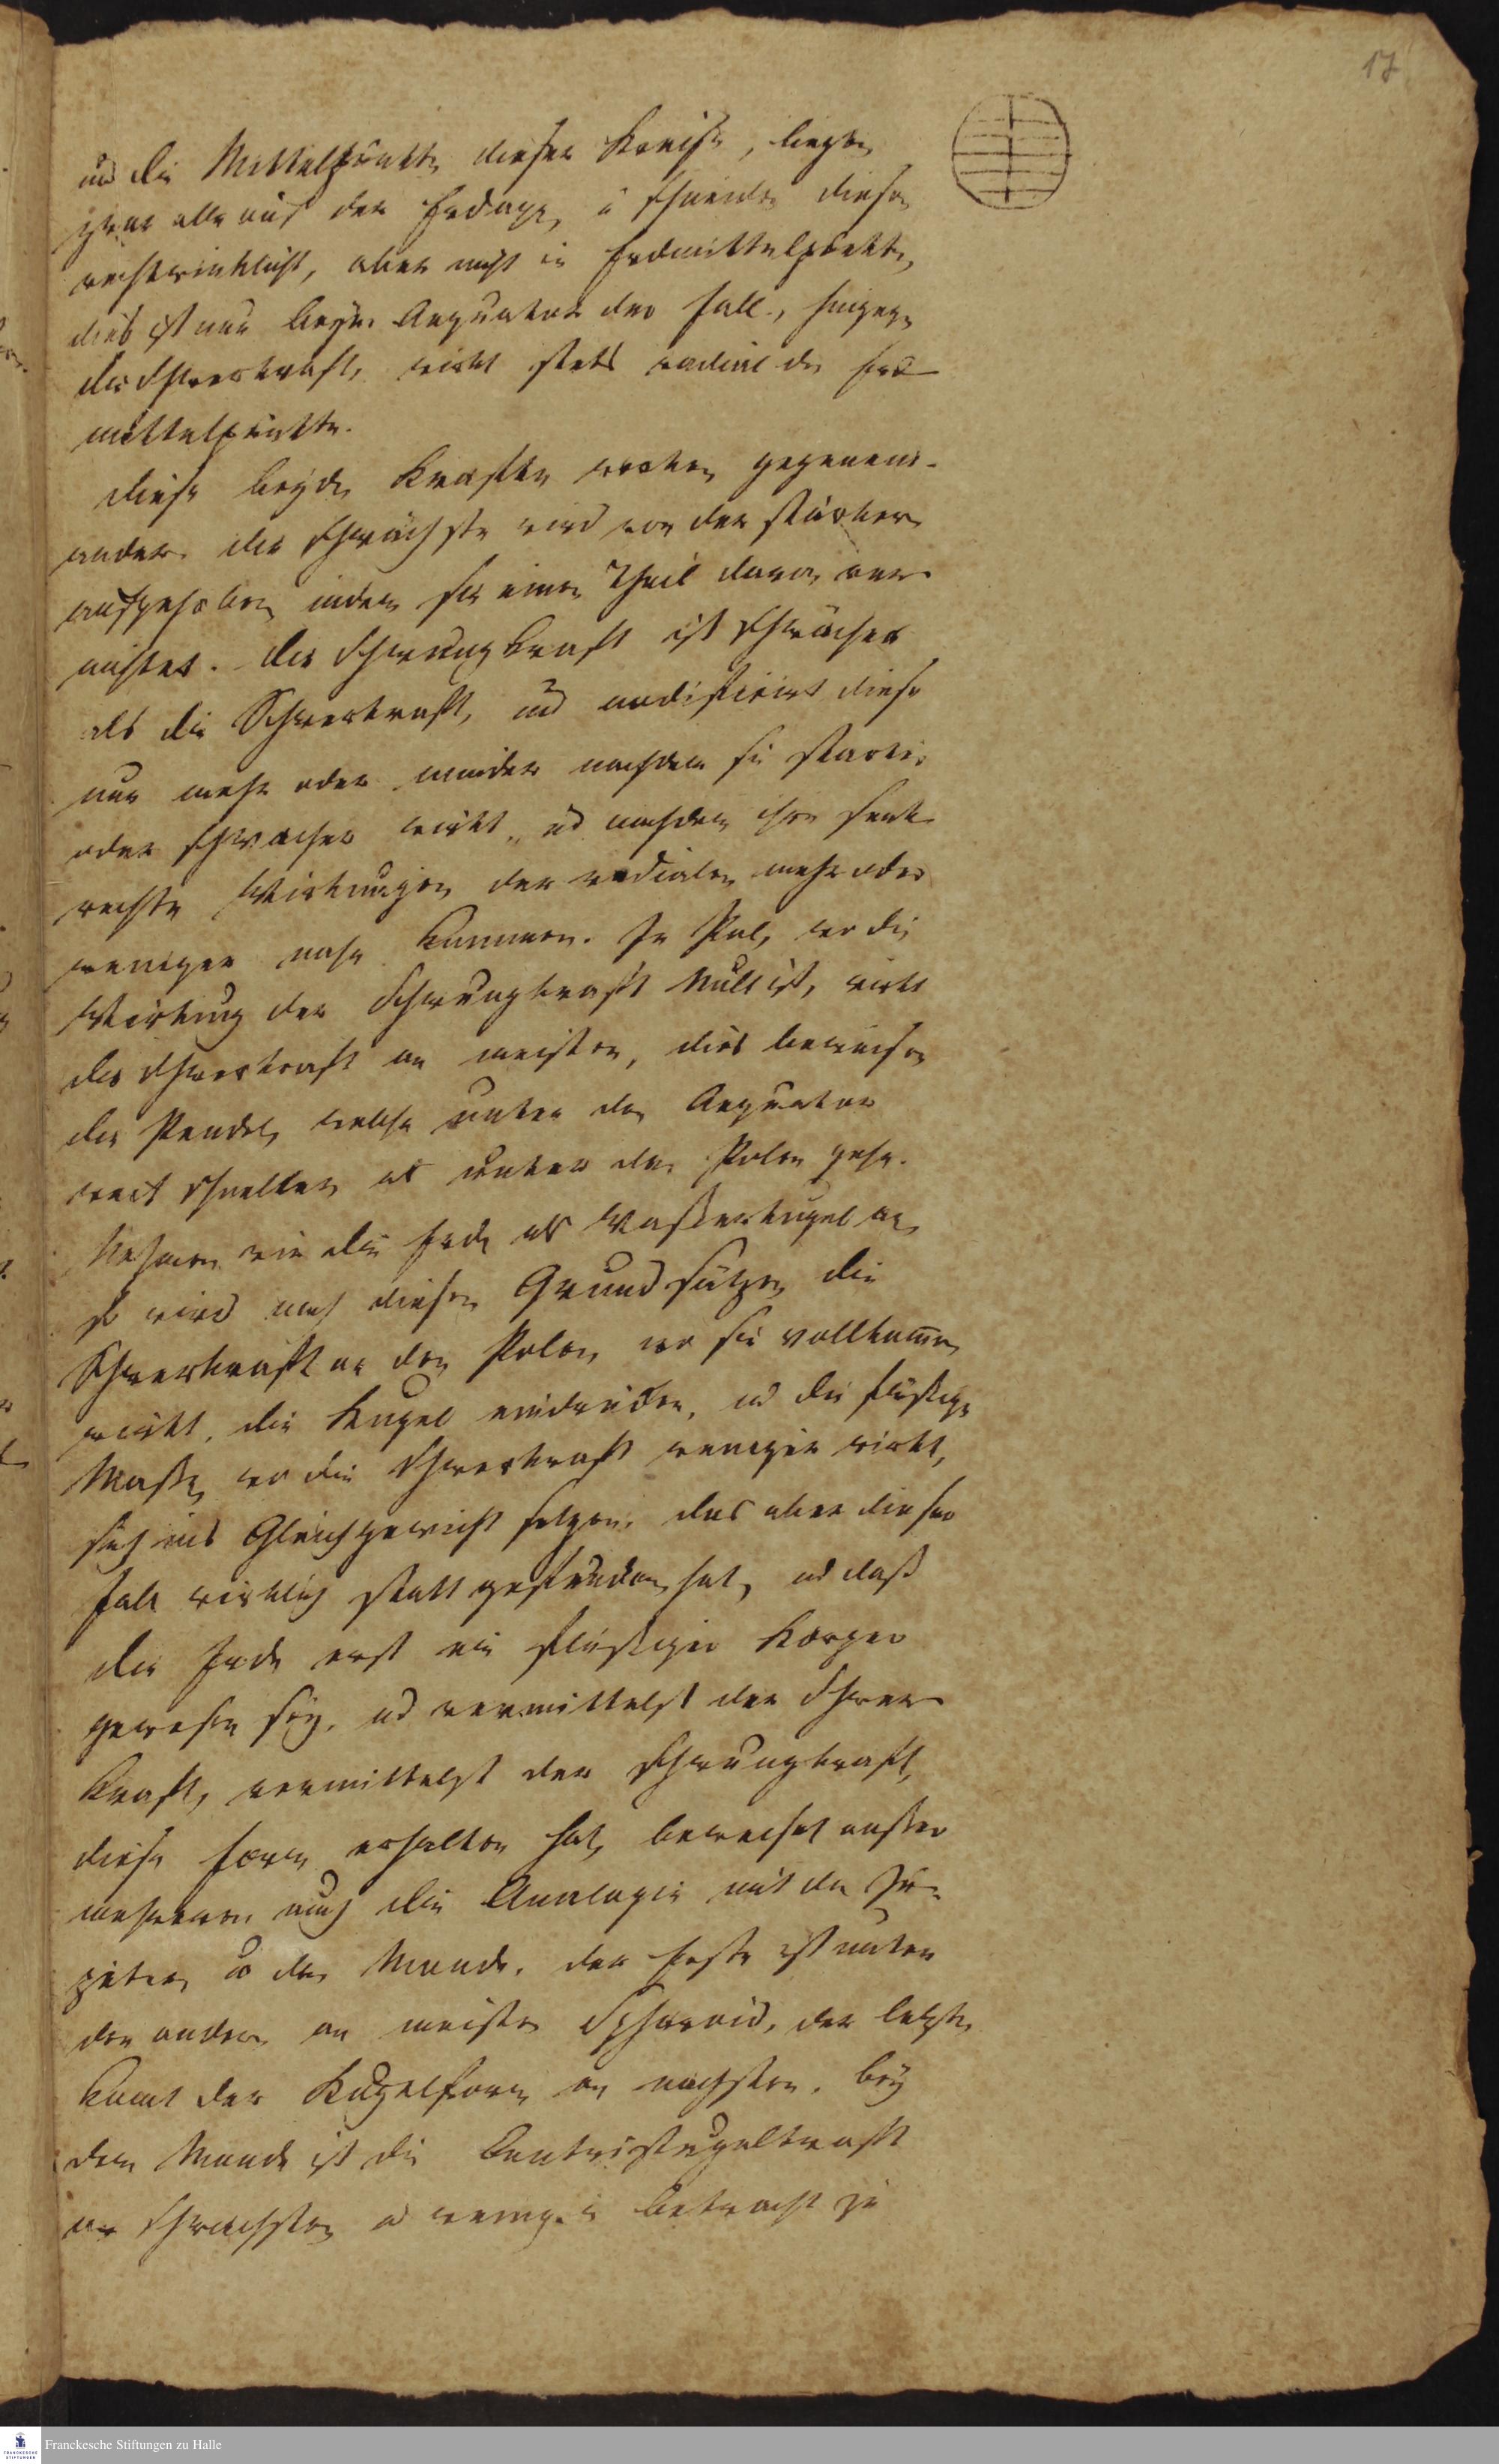 17
und die Mittelpunkte dieser Kreise, liegen
zwar alle auf der Erdaxe, u schneiden diese
rechtwinklicht, aber nicht im Erdmittelpunkte,
dies ist nur beym Aequator der Fall, hingegen
die Schwerkraft, wirkt stets radial der Erd
mittelpunkte.
diese beyden Kraefte wirken gegenein-
ander. die schwächste wird von der stärkern
aufgehoben indem sie einen Theil davon ver-
nichtet. die Schwungkraft ist schwächer
als die Schwerkraft, und modificirt diese
nur mehr oder minder nachdem sie starker
oder schwacher wirkt, und nachdem ihre senk
rechte Wirkungen der radialen mehr oder
weniger nahe kommen. Im Pol, wo die
Wirkung der Schwungkraft Null ist, wirkt
die Schwerkraft am meisten, dies beweisen
die Pendel, welche unter dem Aequator
weit schneller als unter den Polen gehn.
Nehmen wir die Erde als Wasserkugel an,
so wird nach diesen Grundsätzen die
Schwerkraft an den Polen, wo sie vollkommen
wirkt, die Kugel eindrücken, und die flüssige
Masse, wo die Schwerkraft weniger wirkt,
sich ins Gleichgewicht setzen. das aber dieser
Fall wirklich statt gefunden hat, und daß
die Erde erst ein flüssiger Körper
gewesen sey, und vermittelst der Schwer
kraft, vermittelst der Schwungkraft,
diese Form erhalten hat, beweiset ausser
mehreren auch die Analogie mit dem Ju-
piter u dem Monde. der erste ist unter
den andern am meisten Sphaeroid, der letzte
kommt der Kugelform am nachsten. bey
dem Monde ist die Centrifugalkraft
am schwachsten u weniger in Betracht zu
Franckesche Stiftungen zu Halle